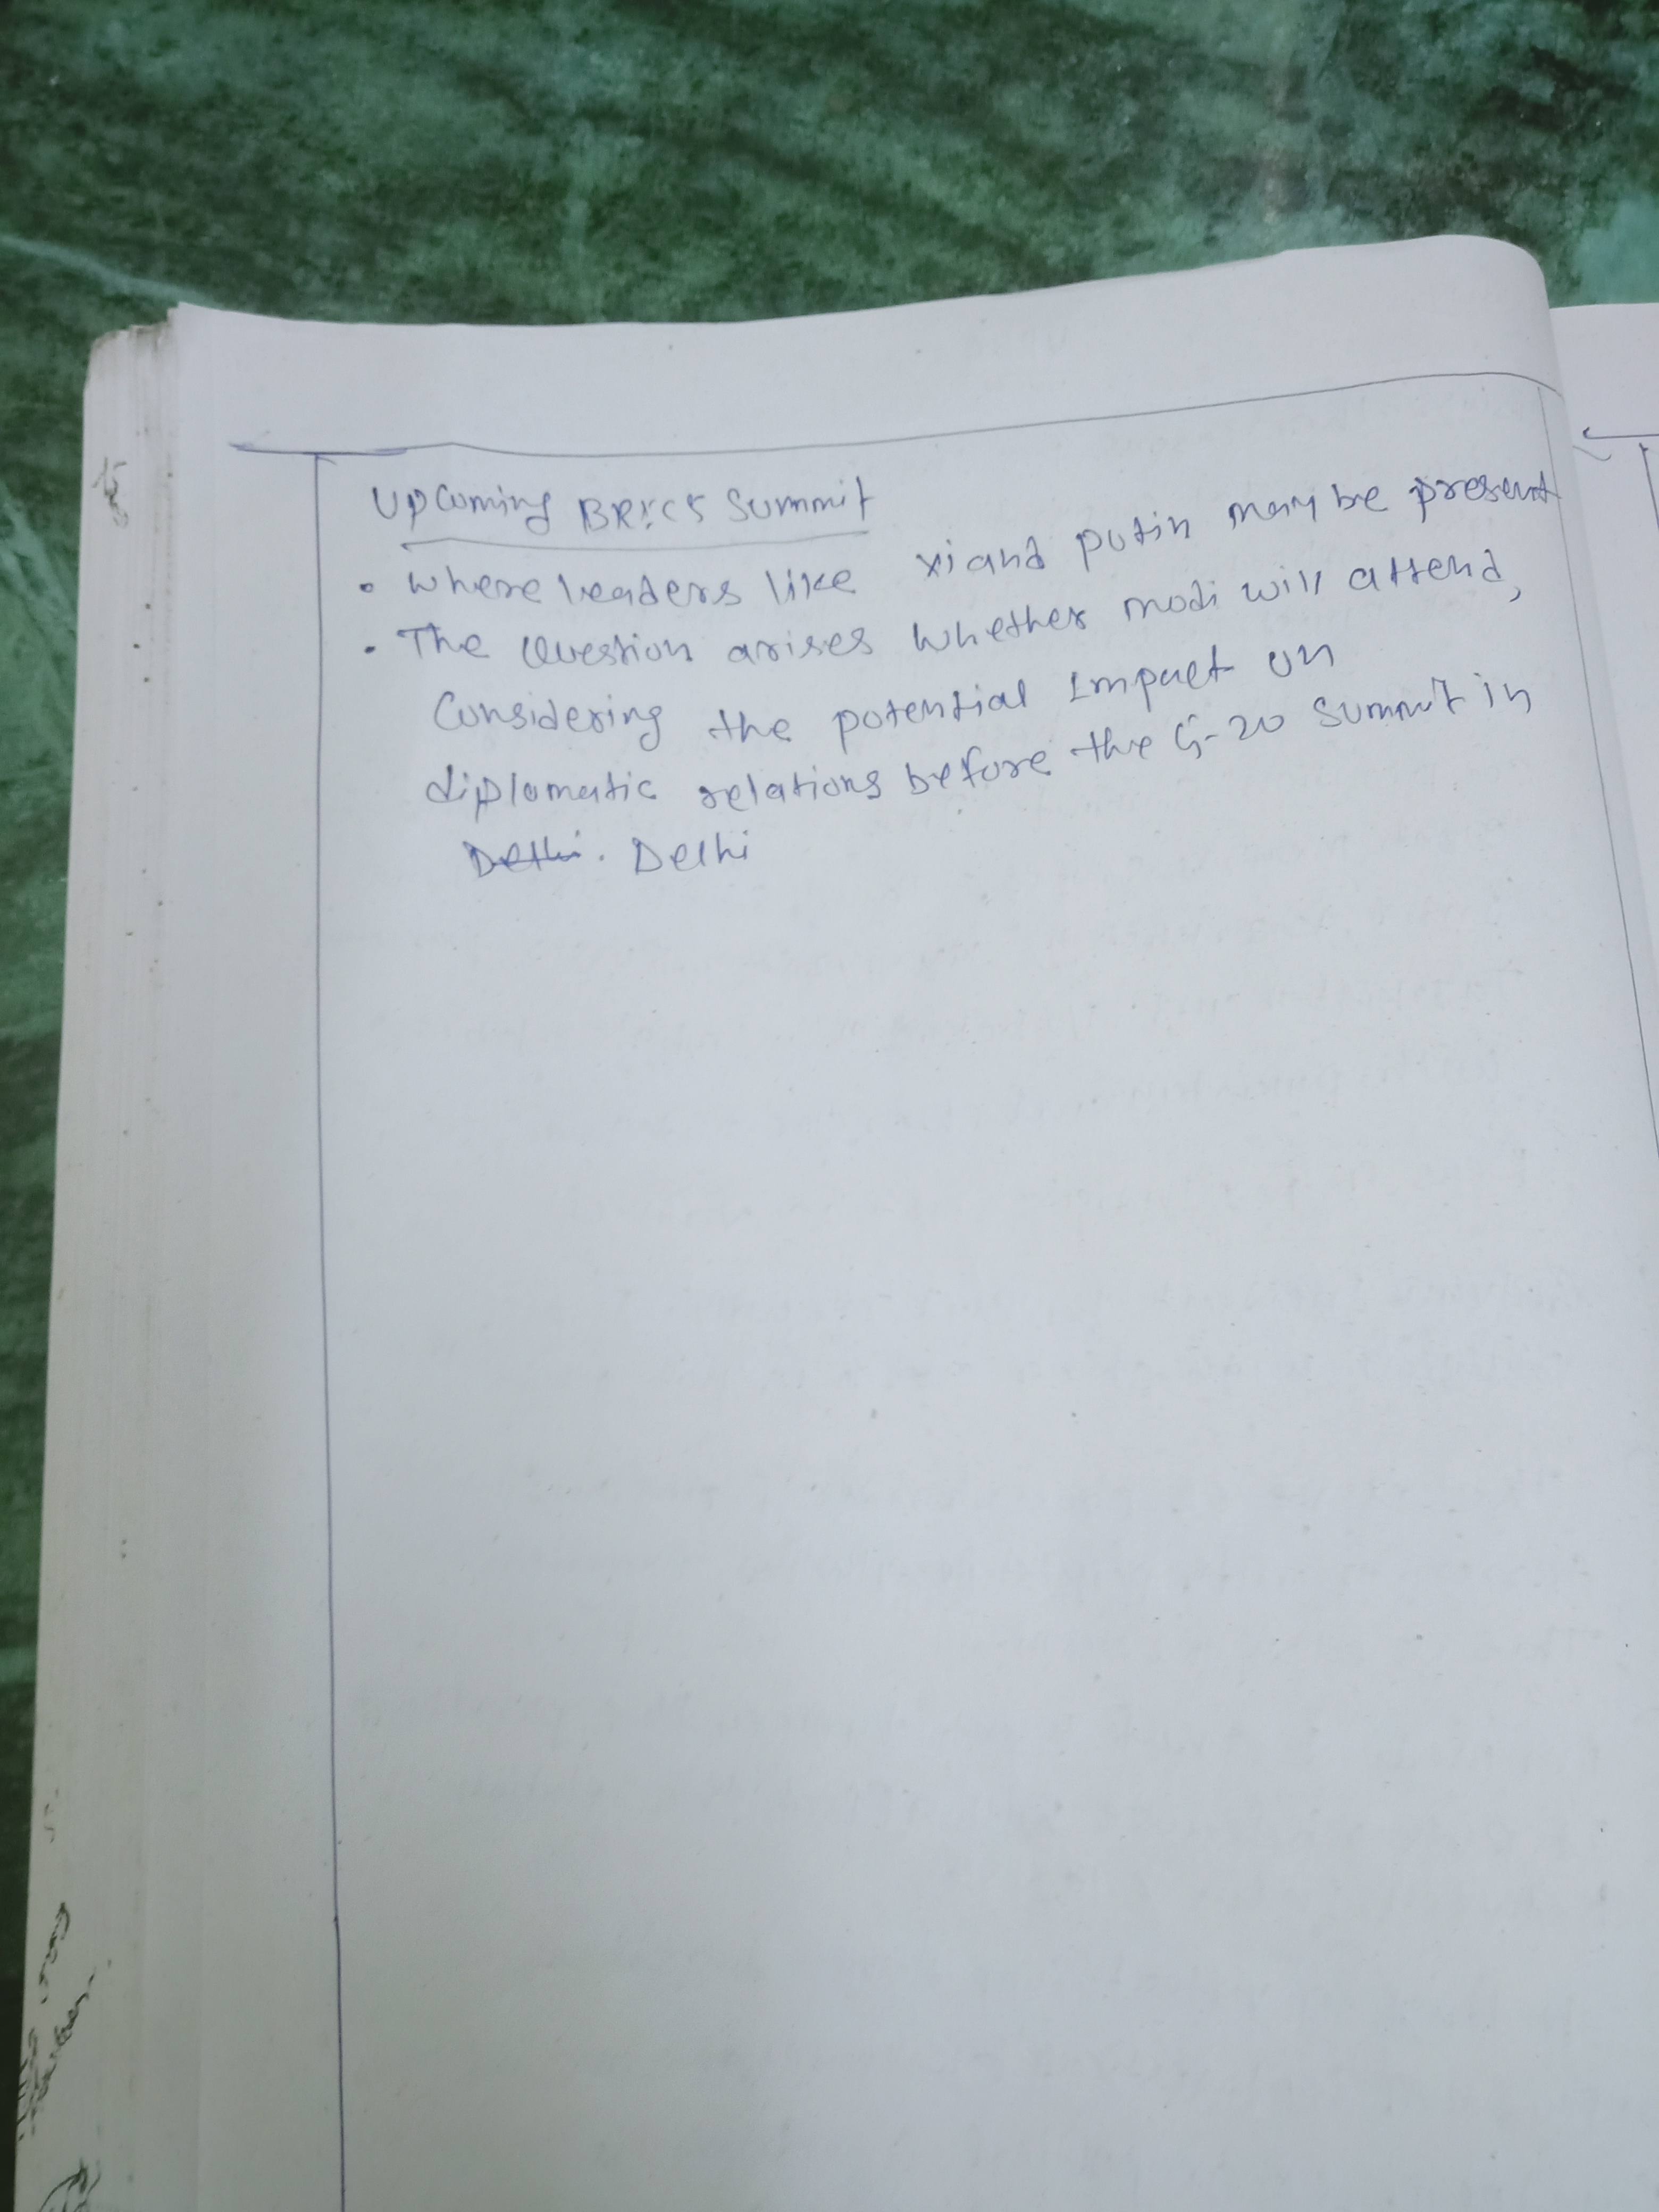 Upcoming BRICS Summit
• where leaders like xi and putin may be present
• The Question arises whether modi will attend,
Considering the potential Impact on
diplomatic relations before the G-20 Summit in
Delhi. Delhi